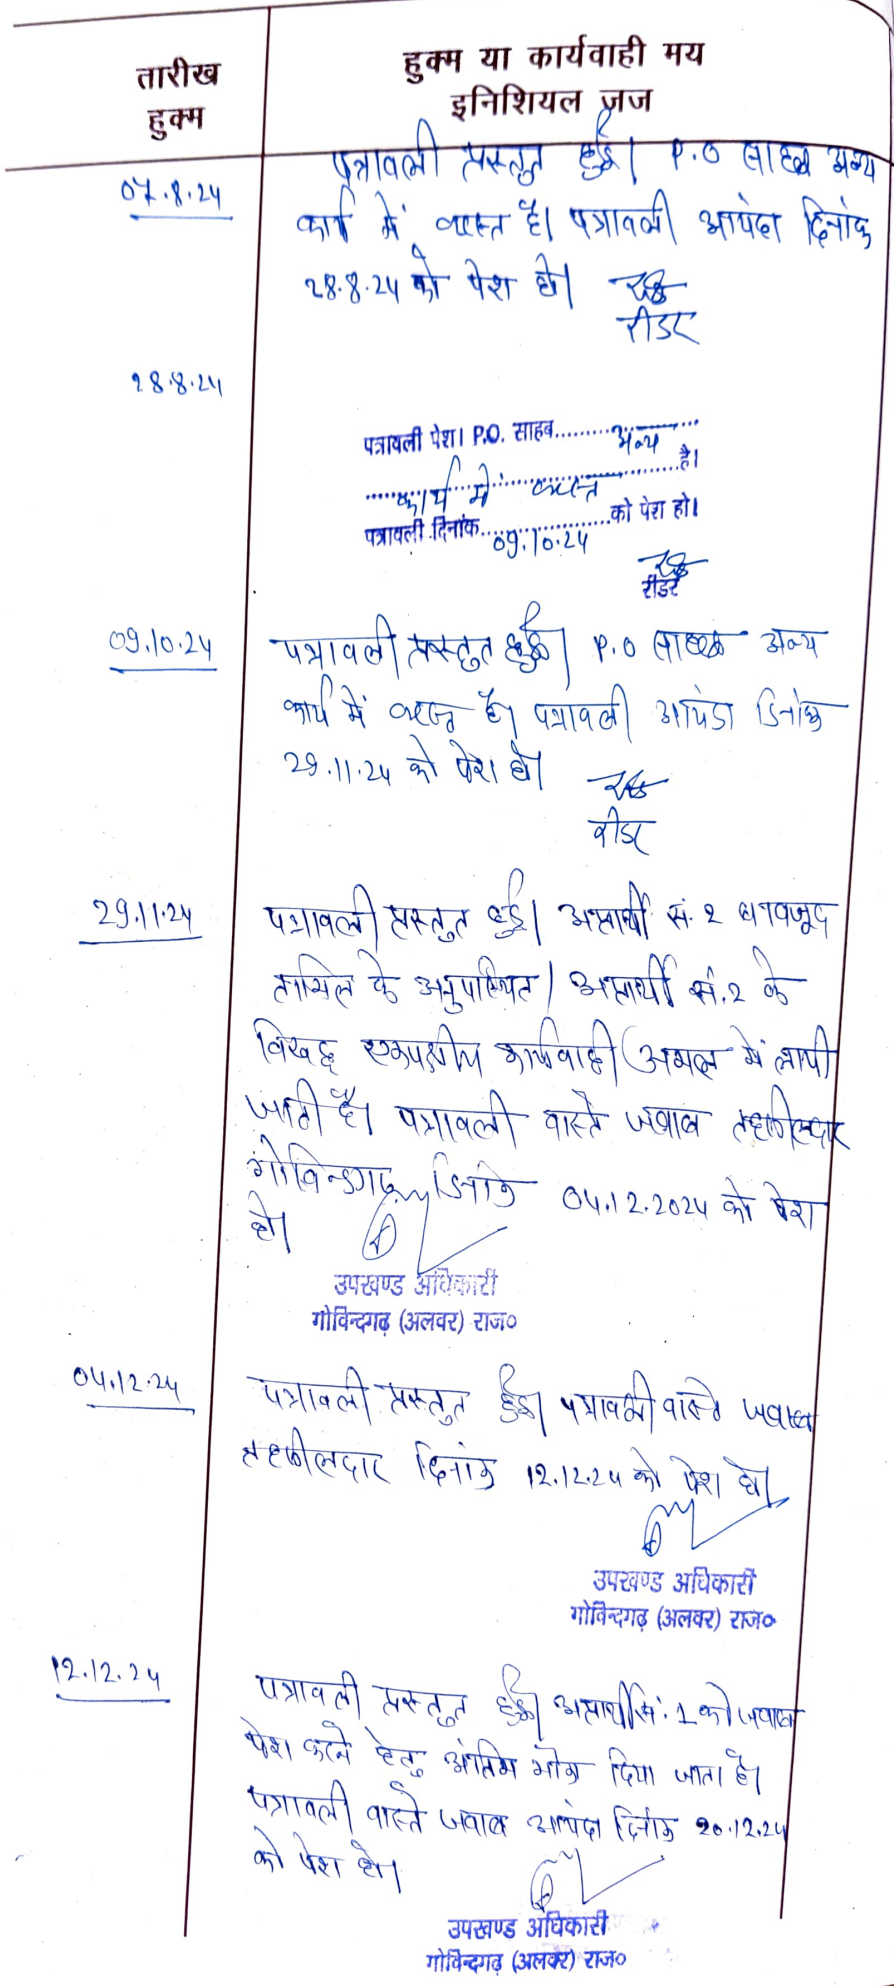 तारीख
हुक्म
हुक्म या कार्यवाही मय
इनिशियल जज
07.8.24
पत्रावली प्रस्तुत हुई। P.O साहब अन्य
कार्य में व्यस्त है। पत्रावली आयंदा दिनांक
28.8.24 को पेश हो।
रीडर
28.8.24
पत्रावली पेश। P.O. साहब..........अन्य.......
......कार्य में व्यस्त..........है।
पत्रावली दिनांक...09.10.24...को पेश हो।
रीडर
09.10.24
पत्रावली प्रस्तुत हुई। P.O साहब अन्य
कार्य में व्यस्त है। पत्रावली आयंदा दिनांक
29.11.24 को पेश हो।
रीडर
29.11.24
पत्रावली प्रस्तुत हुई। अप्रार्थी सं. 2 बावजूद
तामिल के अनुपस्थित। अप्रार्थी सं. 2 के
विरुद्ध एकपक्षीय कार्यवाही अमल में लायी
जाती है। पत्रावली वास्ते जवाब तहसीलदार
गोविन्दगढ़ दिनांक 04.12.2024 को पेश
हो।
उपखण्ड अधिकारी
गोविन्दगढ़ (अलवर) राज०
04.12.24
पत्रावली प्रस्तुत हुई। पत्रावली वास्ते जवाब
तहसीलदार दिनांक 12.12.24 को पेश हो।
उपखण्ड अधिकारी
गोविन्दगढ़ (अलवर) राज०
12.12.24
पत्रावली प्रस्तुत हुई। अप्रार्थी सं. 1 को जवाब
पेश करने हेतु अंतिम मौका दिया जाता है।
पत्रावली वास्ते जवाब आयंदा दिनांक 20.12.24
को पेश हो।
उपखण्ड अधिकारी
गोविन्दगढ़ (अलवर) राज०